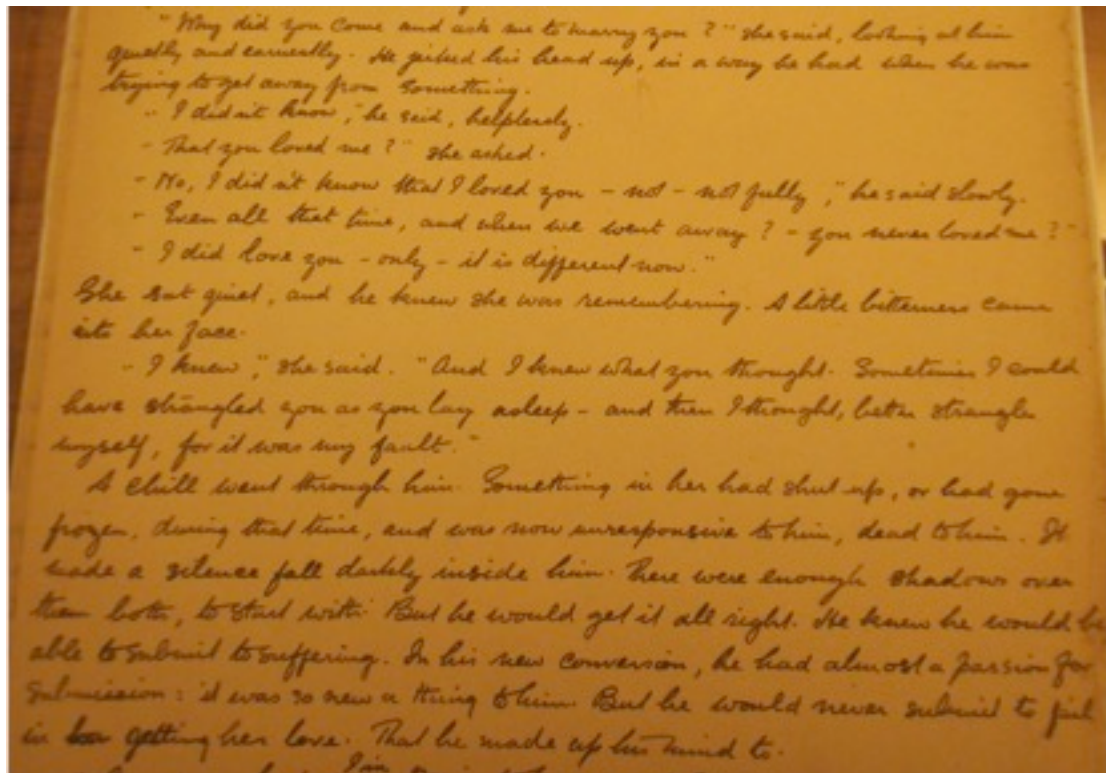 "Why did you come and ask me to marry you?" she said, looking at him
quietly and earnestly. He jerked his head up, in a way he had when he was
trying to get away from something.
"I didn't know," he said, helplessly.
"That you loved me?" she asked.
"No, I didn't know that I loved you – not – not fully," he said slowly.
"Even all that time, and when we went away? – you never loved me?"
"I did love you – only – it is different now."
She sat quiet, and he knew she was remembering. A little bitterness came
into her face.
"I knew," she said. "And I knew what you thought. Sometimes I could
have strangled you as you lay asleep – and then I thought, better strangle
myself, for it was my fault."
A chill went through him. Something in her had shut up, or had gone
frozen, during that time, and was now unresponsive to him, dead to him. It
made a silence fall darkly inside him. There were enough shadows over
them both, to start with. But he would get it all right. He knew he would be
able to submit to suffering. In his new conversion, he had almost a passion for
submission: it was so new a thing to him. But he would never submit to fail
in getting her love. That he made up his mind to.